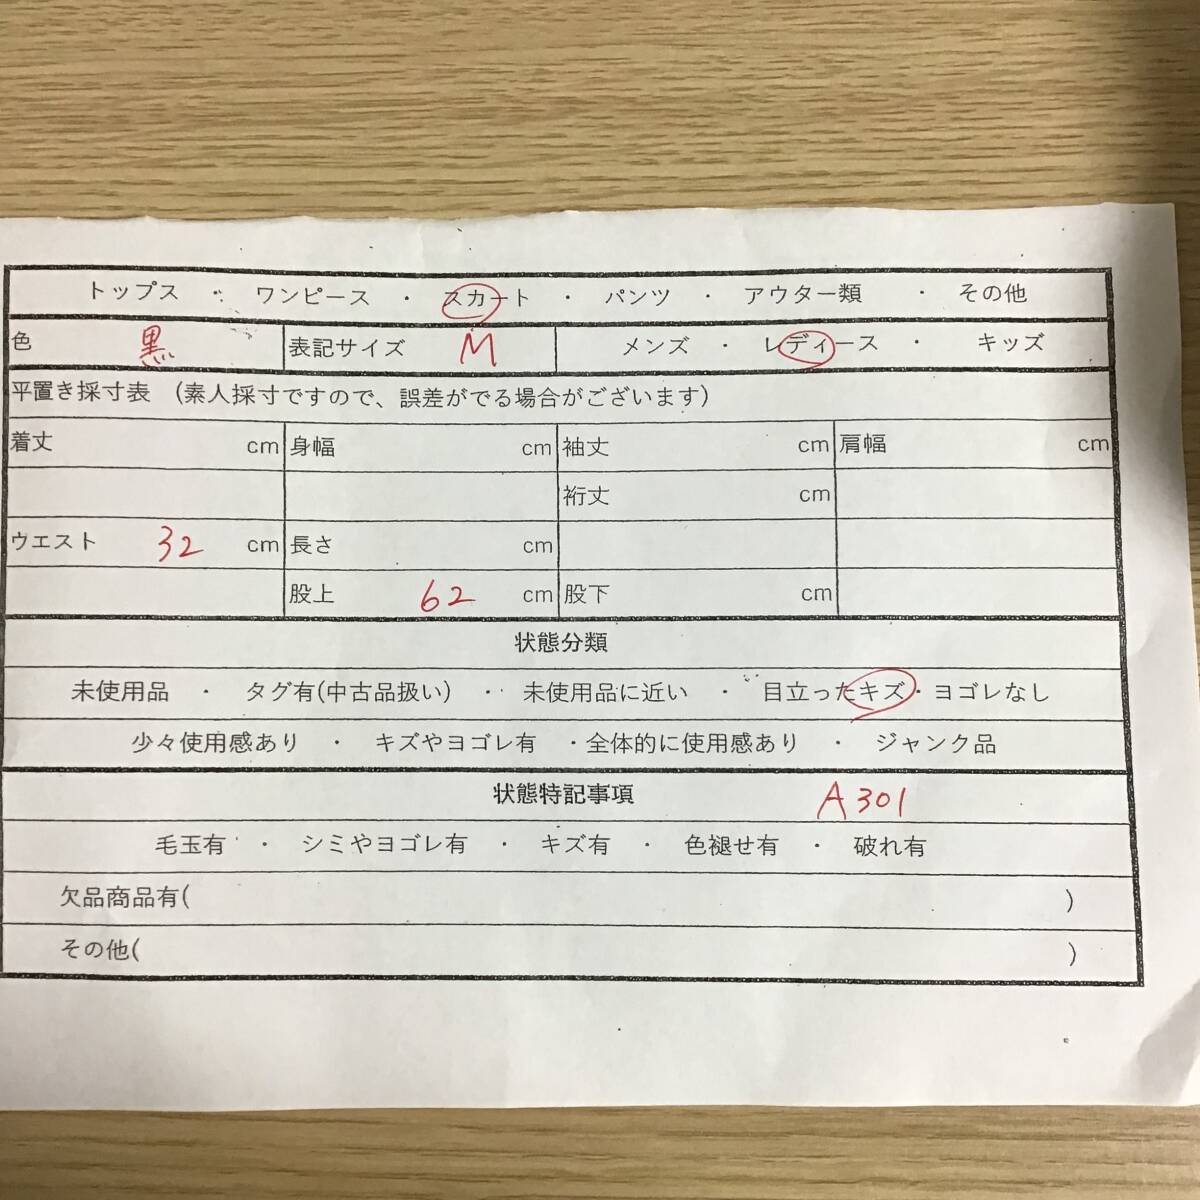 トップス ・ ワンピース ・ スカート ・ パンツ ・ アウター類 ・ その他
色 黒 表記サイズ M メンズ ・ レディース ・ キッズ
平置き採寸表 (素人採寸ですので、誤差がでる場合がございます)
着丈 cm 身幅 cm 袖丈 cm 肩幅 cm
裄丈 cm
ウエスト 32 cm 長さ cm
股上 62 cm 股下 cm
状態分類
未使用品 ・ タグ有(中古品扱い) ・ 未使用品に近い ・ 目立ったキズ・ヨゴレなし
少々使用感あり ・ キズやヨゴレ有 ・全体的に使用感あり ・ ジャンク品
状態特記事項 A301
毛玉有 ・ シミやヨゴレ有 ・ キズ有 ・ 色褪せ有 ・ 破れ有
欠品商品有( )
その他( )